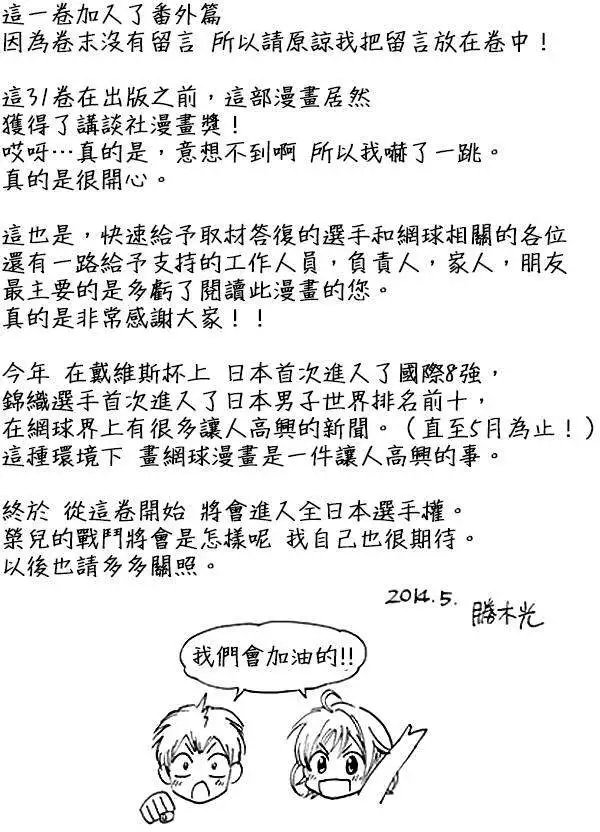 這一卷加入了番外篇
因為卷末沒有留言 所以請原諒我把留言放在卷中！
這31卷在出版之前，這部漫畫居然
獲得了講談社漫畫獎！
哎呀…真的是，意想不到啊 所以我嚇了一跳。
真的是很開心。
這也是，快速給予取材答復的選手和網球相關的各位
還有一路給予支持的工作人員，負責人，家人，朋友
最主要的是多虧了閱讀此漫畫的您。
真的是非常感謝大家！！
今年 在戴維斯杯上 日本首次進入了國際8強，
錦織選手首次進入了日本男子世界排名前十，
在網球界上有很多讓人高興的新聞。（直至5月為止！）
這種環境下 畫網球漫畫是一件讓人高興的事。
終於 從這卷開始 將會進入全日本選手權。
榮兒的戰鬥將會是怎樣呢 我自己也很期待。
以後也請多多關照。
2014.5. 勝木光
我們會加油的!!